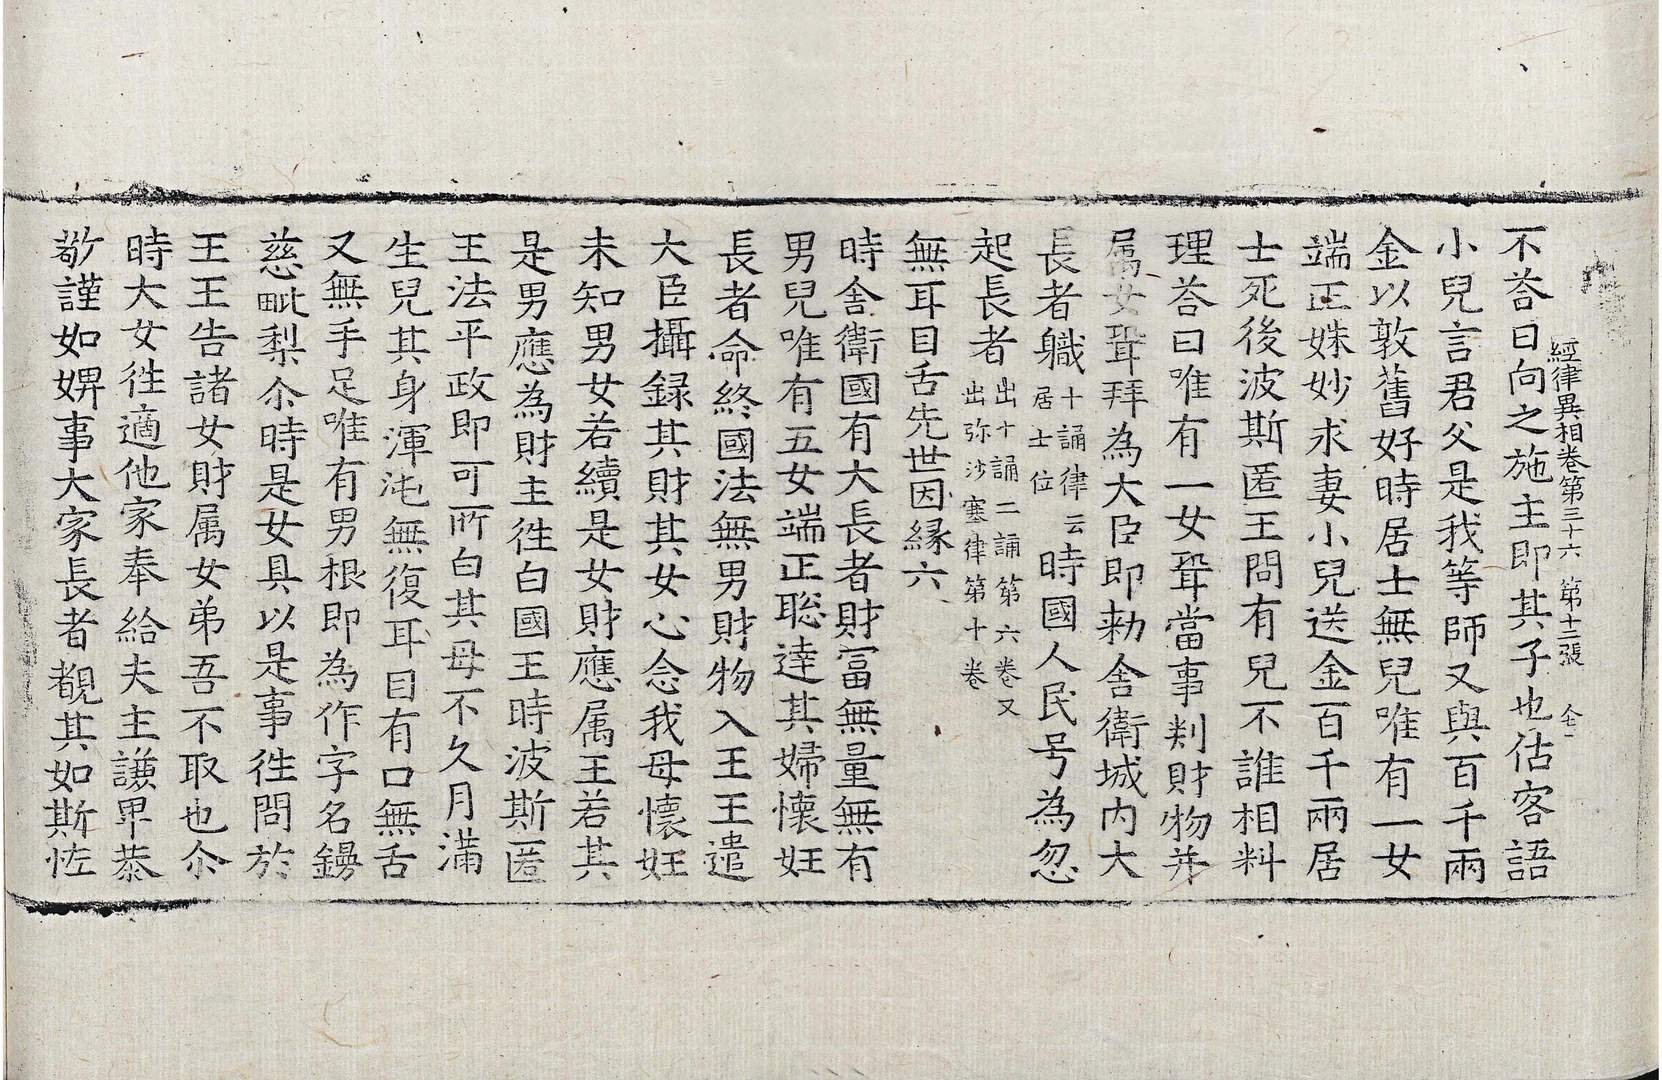 經律異相卷第三十六 第十二張
不荅曰向之施主即其子也估客語
小兒言君父是我等師又與百千兩
金以敦舊好時居士無兒唯有一女
端正姝妙求妻小兒送金百千兩居
士死後波斯匿王問有兒不誰相料
理荅曰唯有一女聟當事判財物并
属女聟拜為大臣即勑舍衛城内大
長者職十誦律云居士位時國人民号為忽
起長者出十誦二誦第六卷又出弥沙塞律第十卷
無耳目舌先世因縁六
時舍衛國有大長者財冨無量無有
男兒唯有五女端正聡達其婦懷妊
長者命終國法無男財物入王王遣
大臣攝録其財其女心念我母懷妊
未知男女若續是女財應属王若其
是男應為財主徃白國王時波斯匿
王法平政即可所白其母不久月滿
生兒其身渾沌無復耳目有口無舌
又無手足唯有男根即為作字名鏝
慈毗梨尒時是女具以是事徃問於
王王告諸女財属女弟吾不取也尒
時大女徃適他家奉給夫主謙卑恭
敬謹如婢事大家長者覩其如斯恠